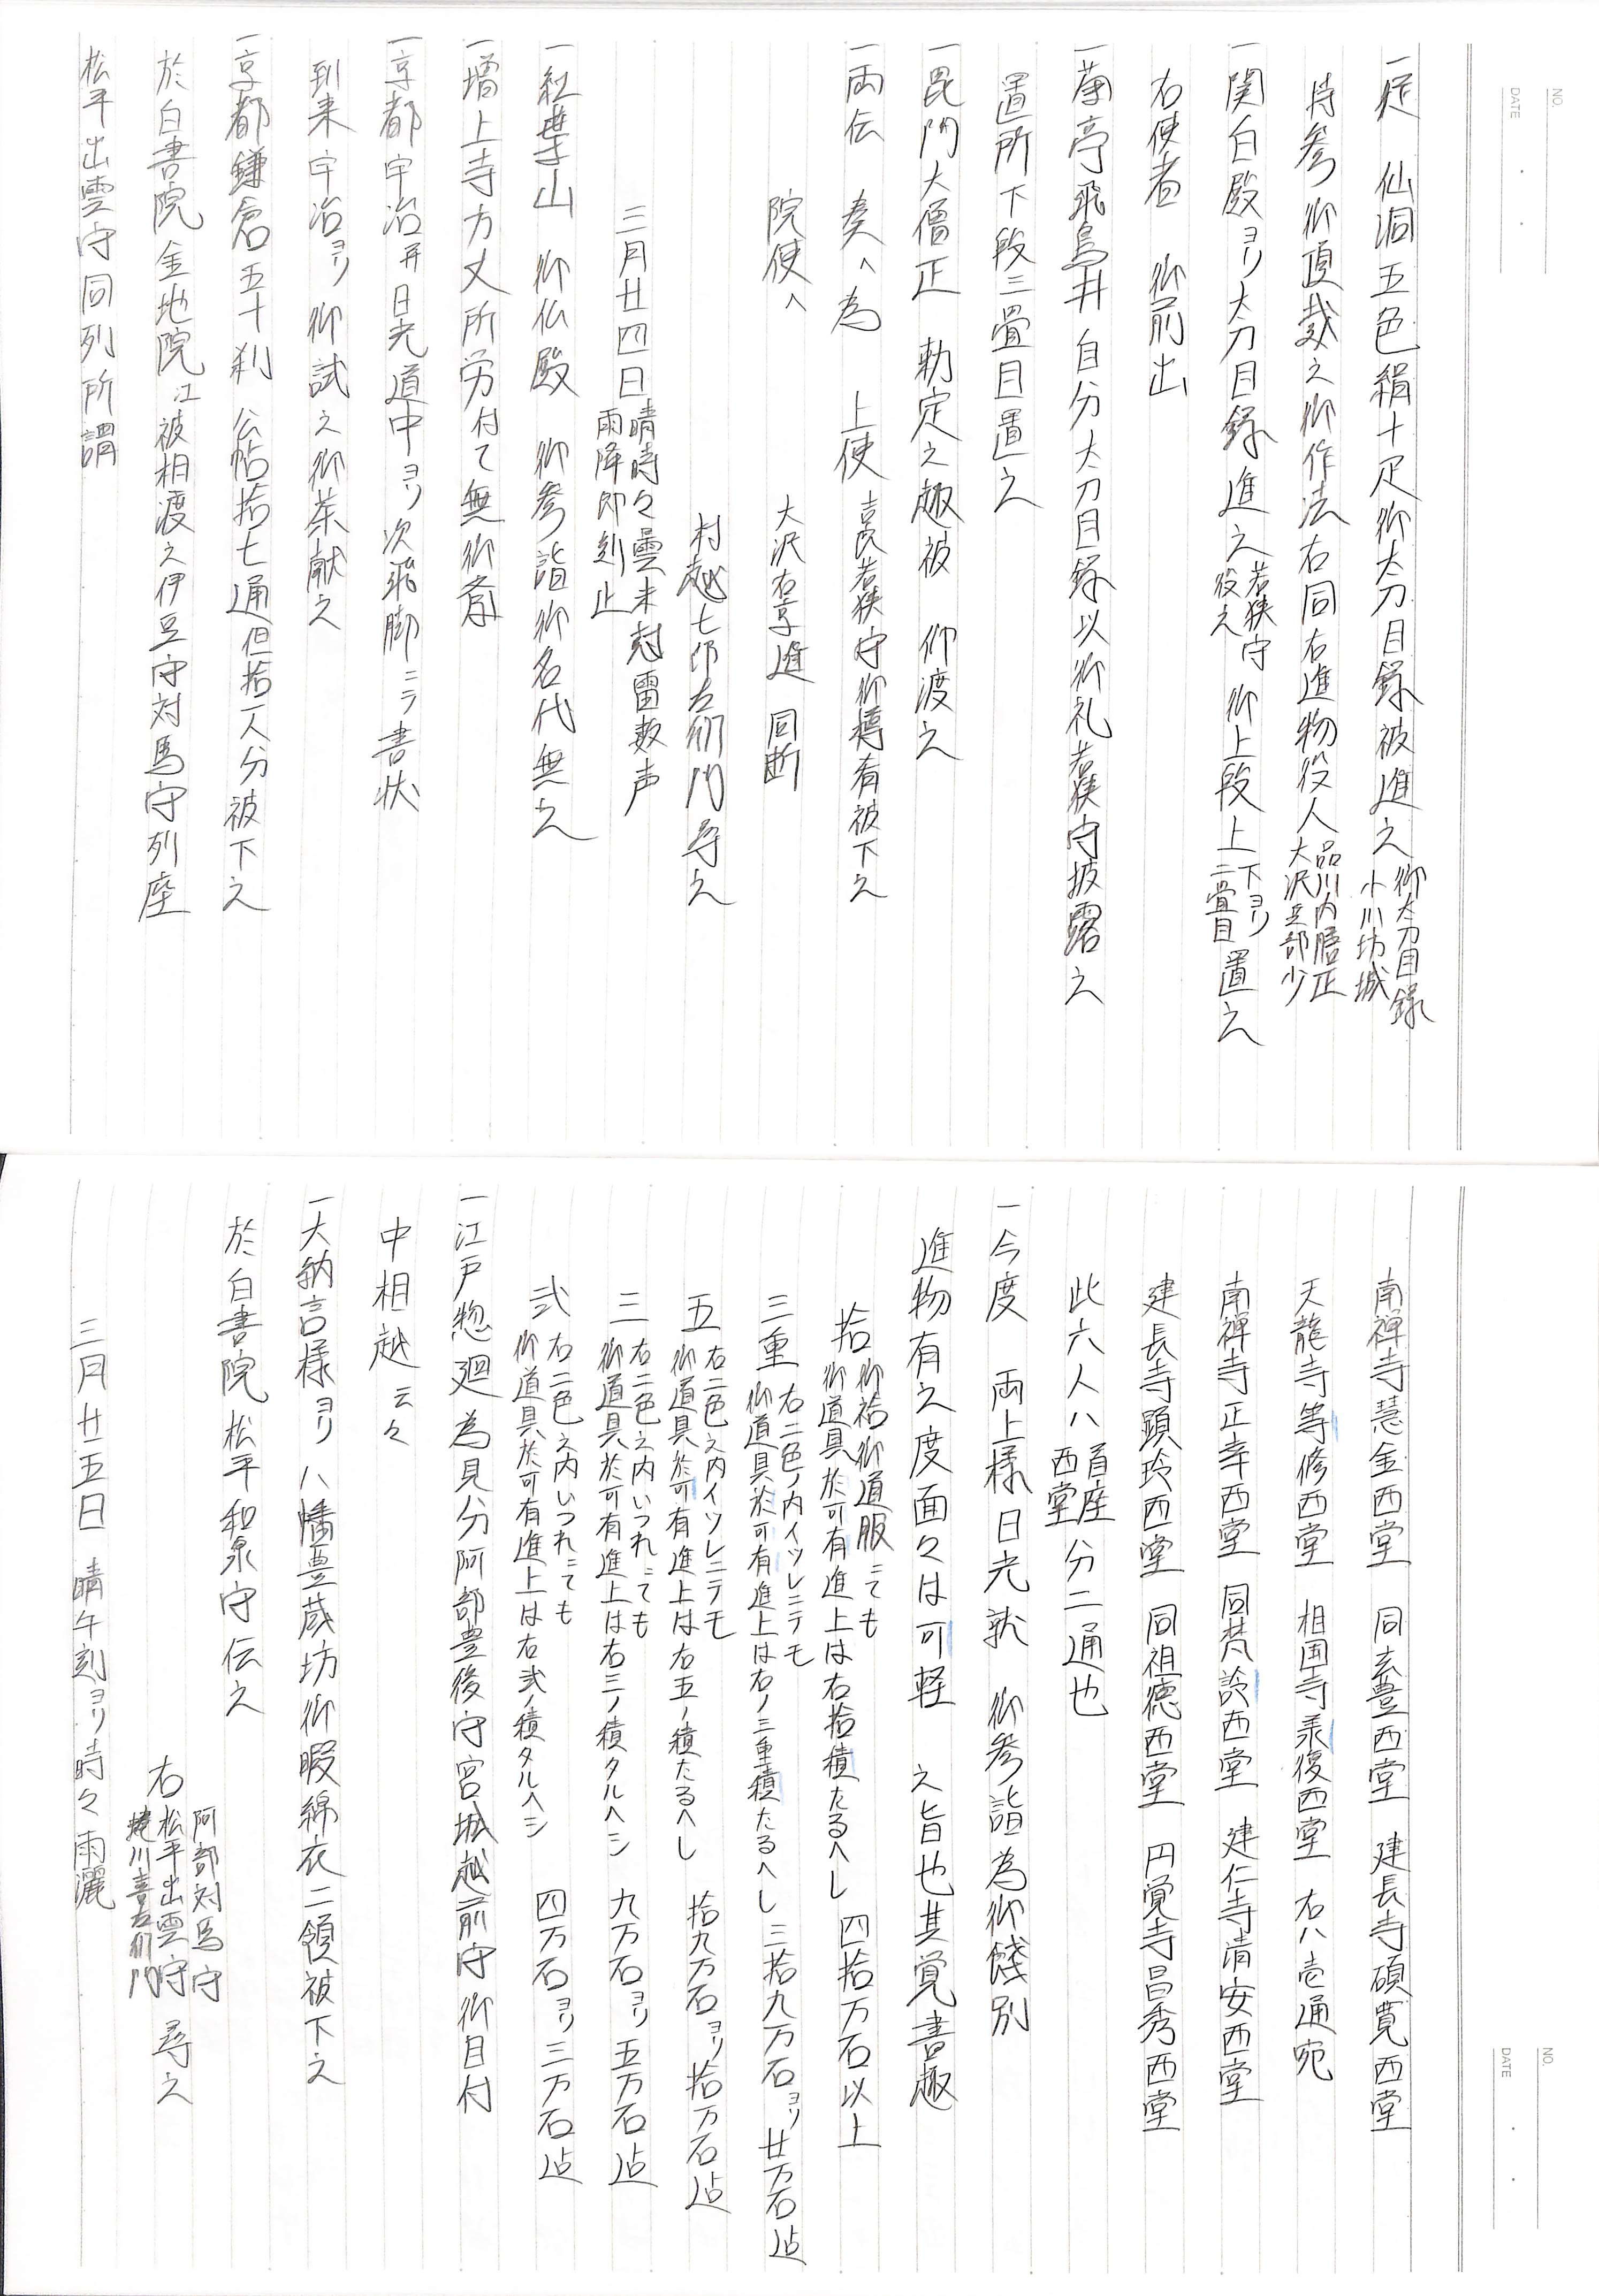 NO.
DATE
一従　仙洞五色絹十疋御太刀目録被進之 御太刀目録 小川坊城
持参御頂戴之御作法右同右進物役人 品川内膳正 大沢兵部少
一関白殿ヨリ太刀目録進之 若狭守役之 御上段上 下ヨリ二畳目 置之
右使者　御前出
一蘭亭飛鳥井自分太刀目録以御礼若狭守披露之
置所下段三畳目置之
一毘門大僧正　勅定之趣被　仰渡之
一両伝　奏ヘ為　上使 吉良若狭守御樽肴被下之
院使ヘ　　大沢右京進　同断
村越七郎左衛門尋之
三月廿四日 晴時々曇未刻雷数声 雨降即刻止
一紅葉山　御仏殿　御参詣御名代無之
一増上寺方丈所労付て無御斎
一京都宇治并日光道中ヨリ次飛脚ニテ書状
到来宇治ヨリ御試之御茶献之
一京都鎌倉五十刹　公帖拾七通但拾一人分被下之
於白書院金地院江被相渡之伊豆守対馬守列座
松平出雲守同列所謂
NO.
DATE
南禅寺慧金西堂　同玄豊西堂　建長寺碩寛西堂
天龍寺等修西堂　相国寺承復西堂　右八壱通宛
南禅寺正幸西堂　同梵詮西堂　建仁寺清安西堂
建長寺顕玲西堂　同祖徳西堂　円覚寺昌秀西堂
此六人八 首座 西堂 分二通也
一今度　両上様日光就　御参詣為御餞別
進物有之度面々は可軽　之旨也其覚書趣
拾 御袷御道服にても 御道具於可有進上は右拾積たるへし　四拾万石以上
三重 右二色ノ内イツレニテモ 御道具於可有進上は右ノ三重積たるへし　三拾九万石ヨリ廿万石迠
五 右二色之内イツレニテモ 御道具於可有進上は右五ノ積たるへし　拾九万石ヨリ拾万石迠
三 右二色之内いつれにても 御道具於可有進上は右三ノ積タルヘシ　九万石ヨリ五万石迠
弐 右二色之内いつれにても 御道具於可有進上は右弐ノ積タルヘシ　四万石ヨリ三万石迠
一江戸惣廻為見分阿部豊後守宮城越前守御目付
中相越云々
一大納言様ヨリ八幡豊蔵坊御暇綿衣二領被下之
於白書院松平和泉守伝之
右 阿部対馬守 松平出雲守 蜷川喜左衛門 尋之
三月廿五日　晴午刻ヨリ時々雨灑